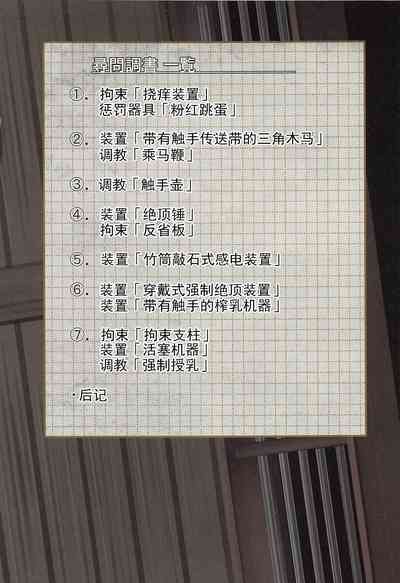 尋問調書 一覧
①. 拘束「挠痒装置」
惩罚器具「粉红跳蛋」
②. 装置「带有触手传送带的三角木马」
调教「乘马鞭」
③. 调教「触手壶」
④. 装置「绝顶锤」
拘束「反省板」
⑤. 装置「竹筒敲石式感电装置」
⑥. 装置「穿戴式强制绝顶装置」
装置「带有触手的榨乳机器」
⑦. 拘束「拘束支柱」
装置「活塞机器」
调教「强制授乳」
·后记